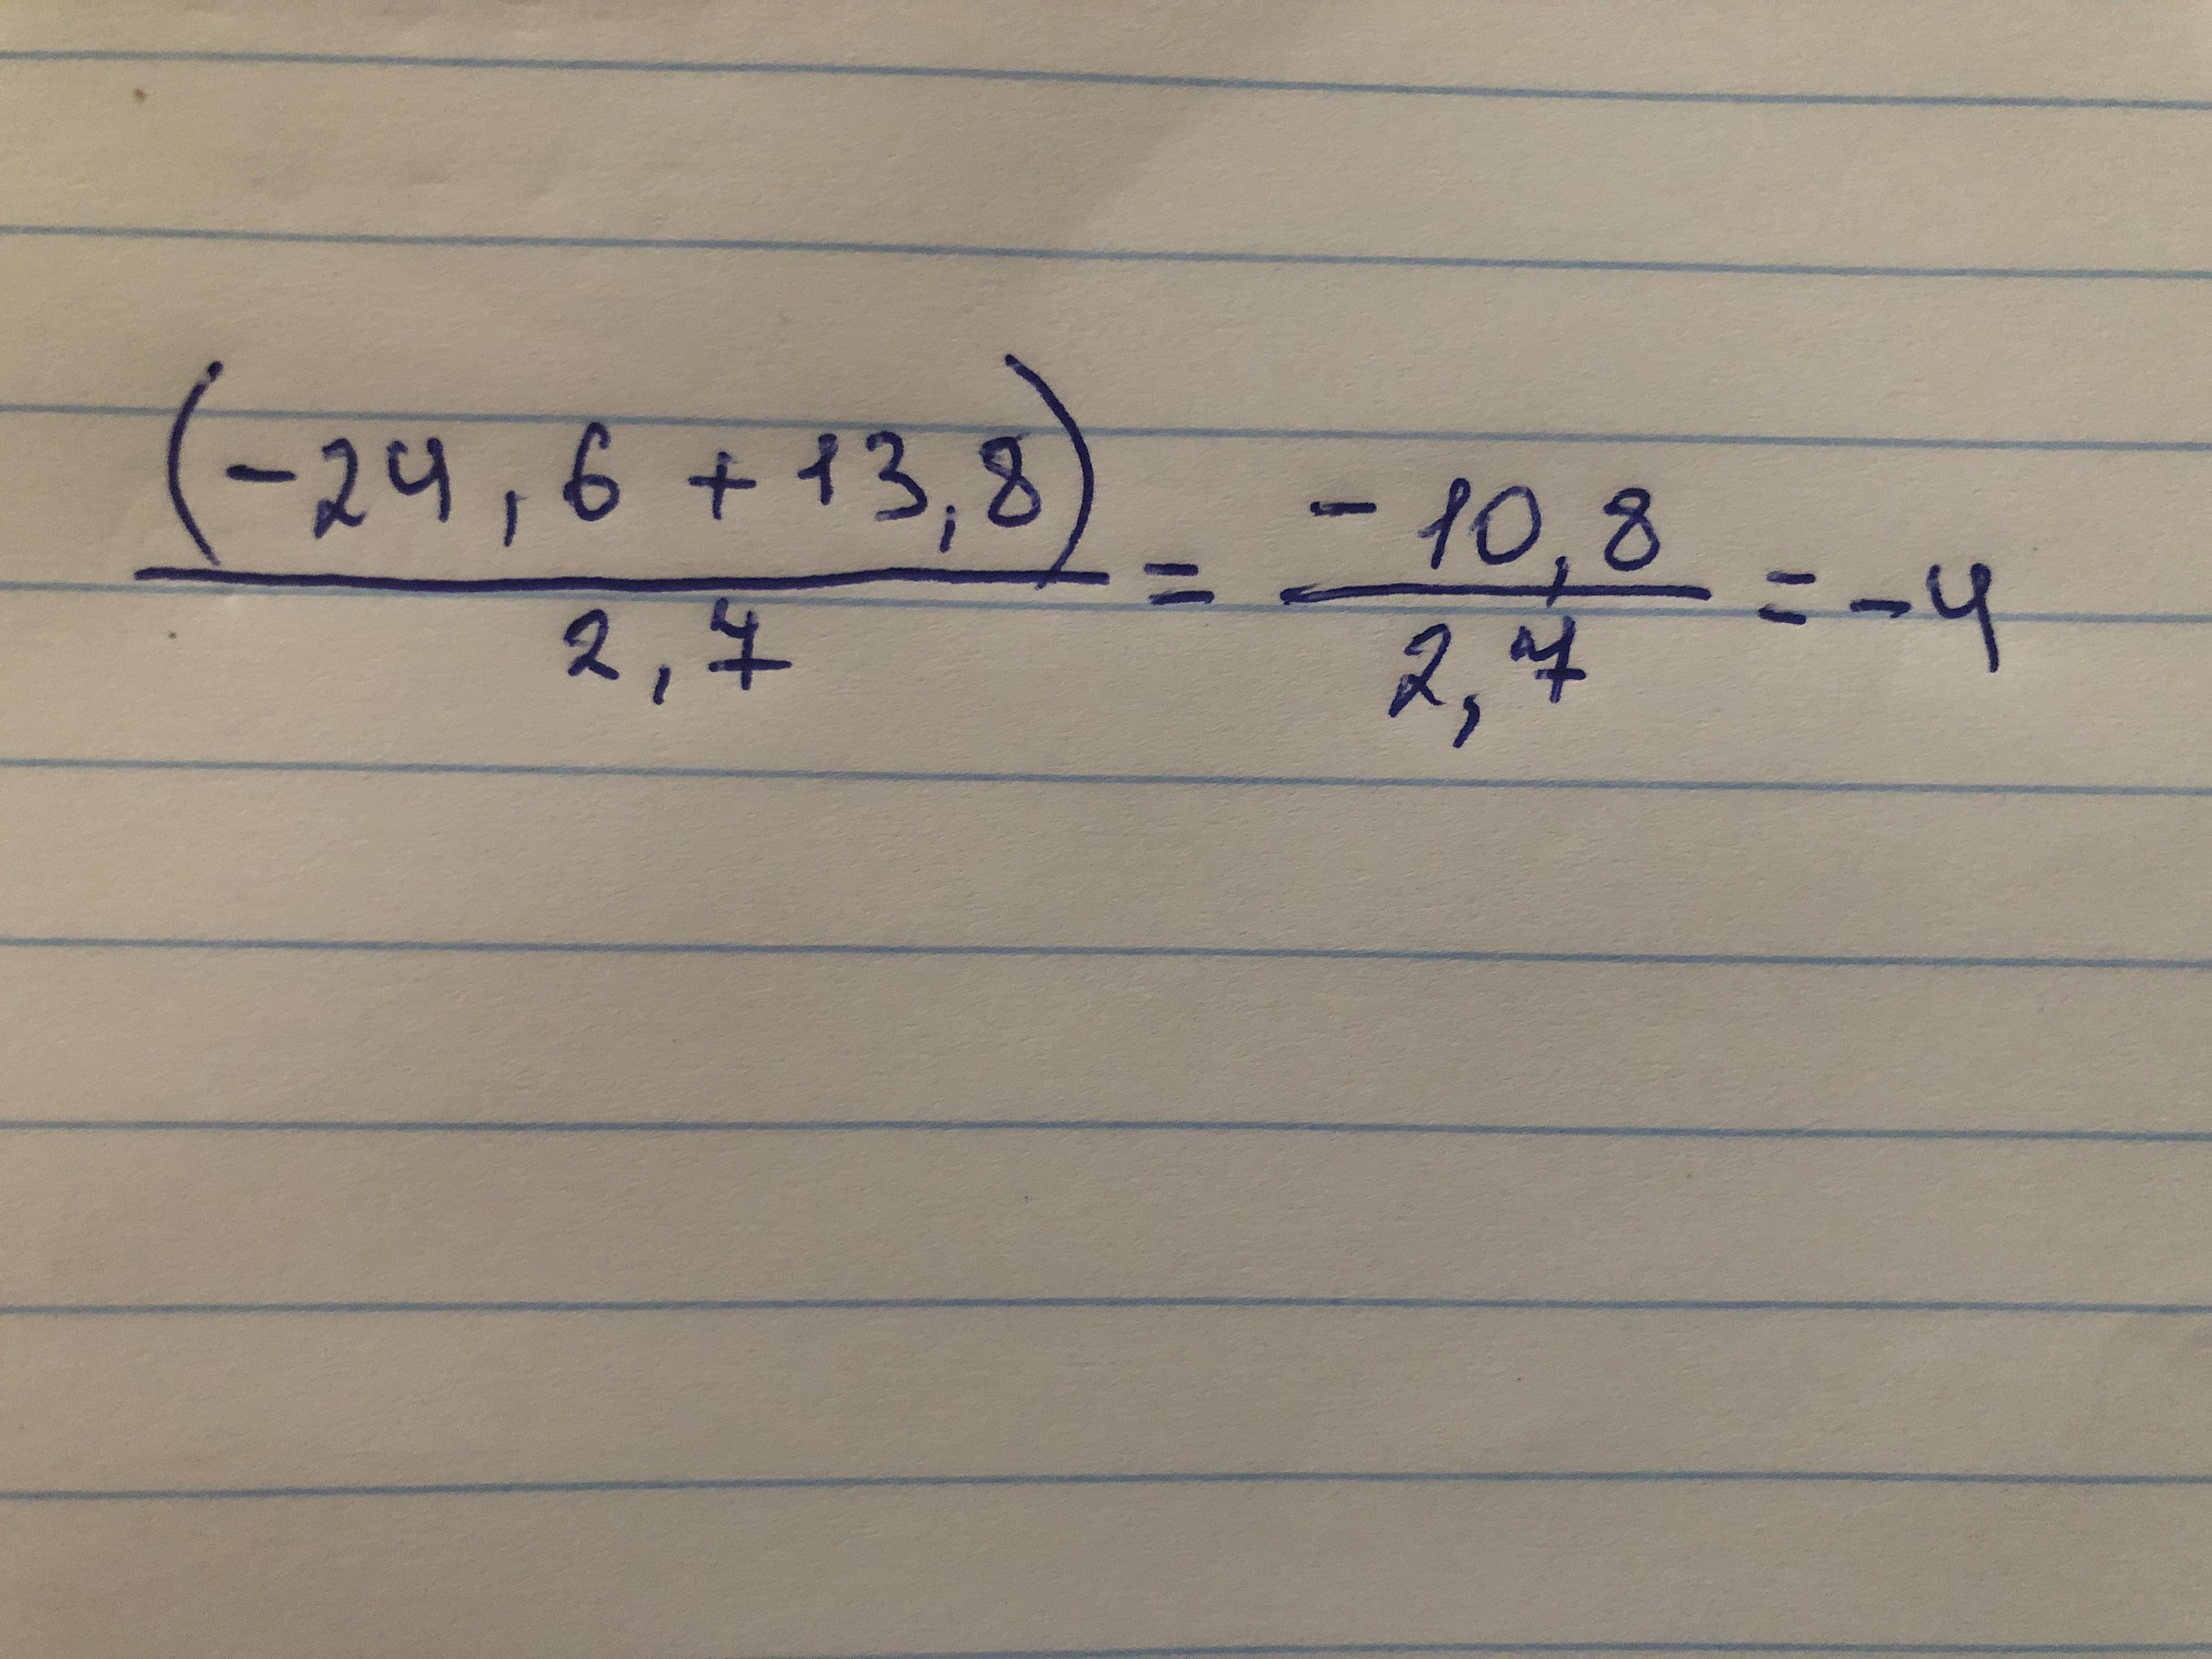 (-24,6 + 13,8) / 2,7 = -10,8 / 2,7 = -4